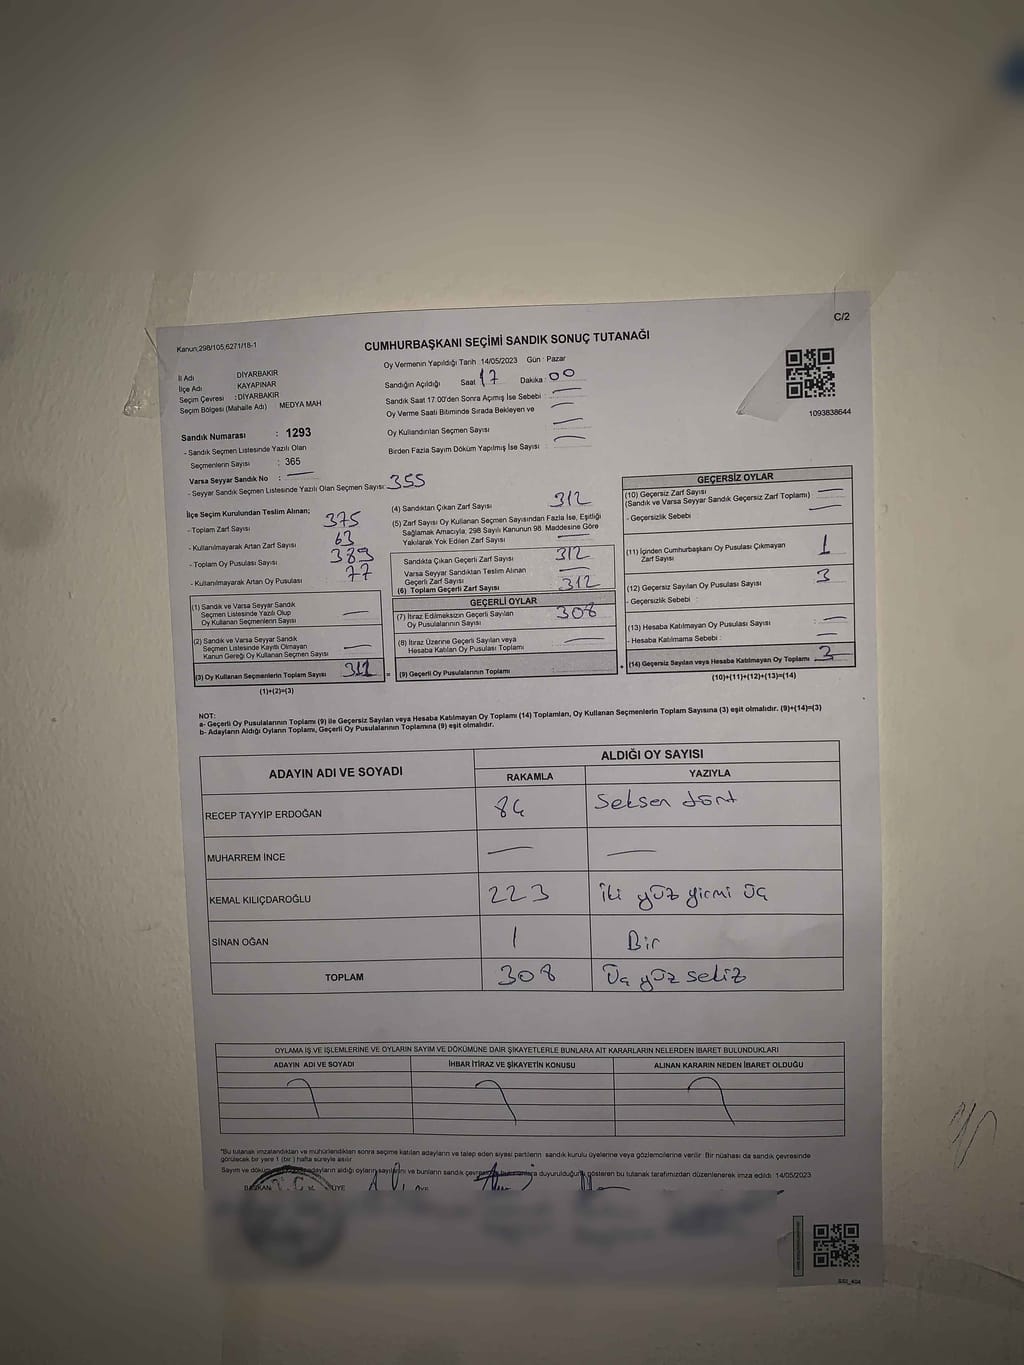 C/2
Kanun;298/105,6271/18-1
CUMHURBAŞKANI SEÇİMİ SANDIK SONUÇ TUTANAĞI
İl Adı : DİYARBAKIR
İlçe Adı : KAYAPINAR
Seçim Çevresi : DİYARBAKIR
Seçim Bölgesi (Mahalle Adı) : MEDYA MAH
Sandık Numarası : 1293
- Sandık Seçmen Listesinde Yazılı Olan
Seçmenlerin Sayısı : 365
Varsa Seyyar Sandık No : —
- Seyyar Sandık Seçmen Listesinde Yazılı Olan Seçmen Sayısı: 355
Oy Vermenin Yapıldığı Tarih : 14/05/2023 Gün : Pazar
Sandığın Açıldığı Saat : 17 Dakika : 00
Sandık Saat 17.00'den Sonra Açımış İse Sebebi : —
Oy Verme Saati Bitiminde Sırada Bekleyen ve —
Oy Kullandırılan Seçmen Sayısı : —
Birden Fazla Sayım Döküm Yapılmış İse Sayısı : —
1093838644
İlçe Seçim Kurulundan Teslim Alınan;
- Toplam Zarf Sayısı : 375
- Kullanılmayarak Artan Zarf Sayısı : 63
- Toplam Oy Pusulası Sayısı : 389
- Kullanılmayarak Artan Oy Pusulası : 77
(1) Sandık ve Varsa Seyyar Sandık
Seçmen Listesinde Yazılı Olup
Oy Kullanan Seçmenlerin Sayısı —
(2) Sandık ve Varsa Seyyar Sandık
Seçmen Listesinde Kayıtlı Olmayan
Kanun Gereği Oy Kullanan Seçmen Sayısı —
(3) Oy Kullanan Seçmenlerin Toplam Sayısı
(1)+(2)=(3)
(4) Sandıktan Çıkan Zarf Sayısı : 312
(5) Zarf Sayısı Oy Kullanan Seçmen Sayısından Fazla İse, Eşitliği
Sağlamak Amacıyla, 298 Sayılı Kanunun 98. Maddesine Göre
Yakılarak Yok Edilen Zarf Sayısı : —
Sandıkta Çıkan Geçerli Zarf Sayısı : 312
Varsa Seyyar Sandıktan Teslim Alınan
Geçerli Zarf Sayısı : —
(6) Toplam Geçerli Zarf Sayısı : 312
GEÇERLİ OYLAR
(7) İtiraz Edilmeksizin Geçerli Sayılan
Oy Pusulalarının Sayısı : 308
(8) İtiraz Üzerine Geçerli Sayılan veya
Hesaba Katılan Oy Pusulası Toplamı : —
= (9) Geçerli Oy Pusulalarının Toplamı :
GEÇERSİZ OYLAR
(10) Geçersiz Zarf Sayısı
(Sandık ve Varsa Seyyar Sandık Geçersiz Zarf Toplamı) : —
- Geçersizlik Sebebi : —
(11) İçinden Cumhurbaşkanı Oy Pusulası Çıkmayan
Zarf Sayısı : 1
(12) Geçersiz Sayılan Oy Pusulası Sayısı : 3
- Geçersizlik Sebebi :
(13) Hesaba Katılmayan Oy Pusulası Sayısı : —
- Hesaba Katılmama Sebebi : —
+ (14) Geçersiz Sayılan veya Hesaba Katılmayan Oy Toplamı :
(10)+(11)+(12)+(13)=(14)
NOT:
a- Geçerli Oy Pusulalarının Toplamı (9) ile Geçersiz Sayılan veya Hesaba Katılmayan Oy Toplamı (14) Toplamları, Oy Kullanan Seçmenlerin Toplam Sayısına (3) eşit olmalıdır. (9)+(14)=(3)
b- Adayların Aldığı Oyların Toplamı, Geçerli Oy Pusulalarının Toplamına (9) eşit olmalıdır.
ADAYIN ADI VE SOYADI ALDIĞI OY SAYISI
RAKAMLA YAZIYLA
RECEP TAYYİP ERDOĞAN 84 Seksen dört
MUHARREM İNCE — —
KEMAL KILIÇDAROĞLU 223 İki yüz yirmi üç
SİNAN OĞAN 1 Bir
TOPLAM 308 Üç yüz sekiz
OYLAMA İŞ VE İŞLEMLERİNE VE OYLARIN SAYIM VE DÖKÜMÜNE DAİR ŞİKAYETLERLE BUNLARA AİT KARARLARIN NELERDEN İBARET BULUNDUKLARI
ADAYIN ADI VE SOYADI İHBAR İTİRAZ VE ŞİKAYETİN KONUSU ALINAN KARARIN NEDEN İBARET OLDUĞU
*Bu tutanak imzalandıktan ve mühürlendikten sonra seçime katılan adayların ve talep eden siyasi partilerin sandık kurulu üyelerine veya gözlemcilerine verilir. Bir nüshası da sandık çevresinde
görülecek bir yere 1 (bir) hafta süreyle asılır.
Sayım ve döküm adayların aldığı oyların sayılarını ve bunların sandık duyurulduğunu gösteren bu tutanak tarafımızdan düzenlenerek imza edildi. 14/05/2023
BAŞKAN T.C. ÜYE ÜYE